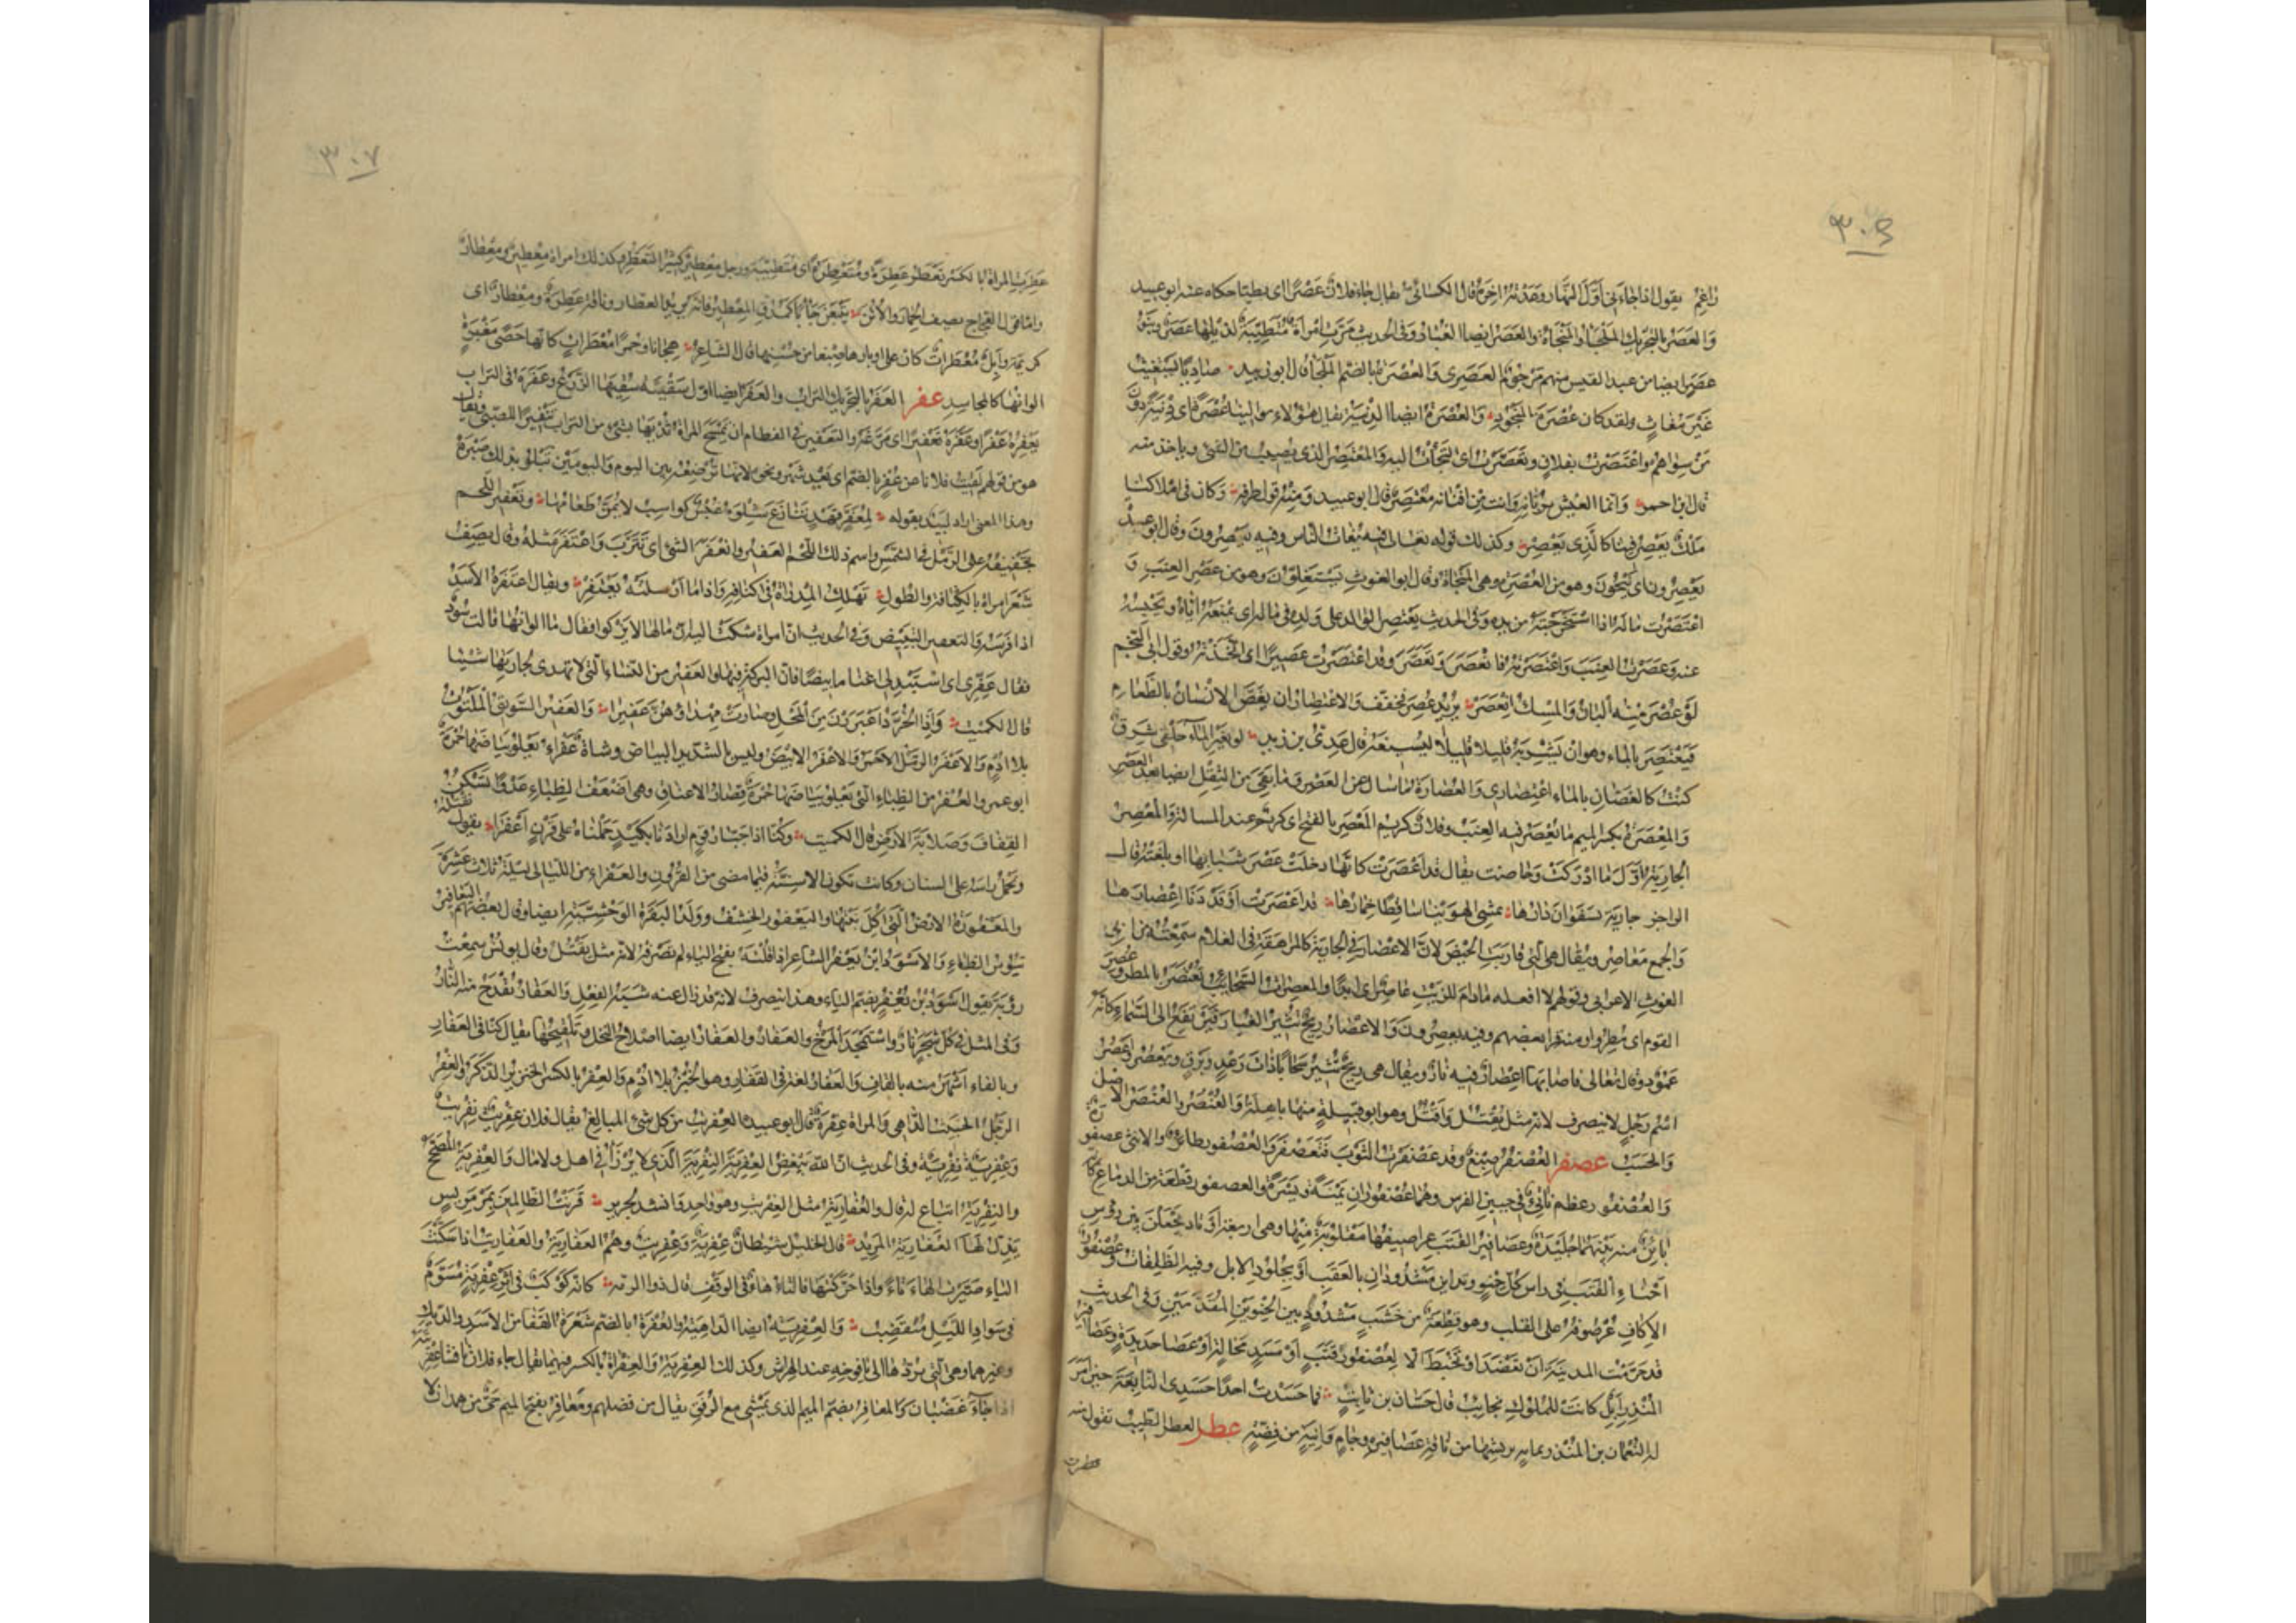 ٣٠٦
راغم يقول اذا جاءني اول النهار وعدته اخره قال الكسائي يقال جاء فلان عصرا اى بطيئا حكاه عنه ابو عبيد
والعصر بالتحريك الملجأ والمنجاة والعصر ايضا الغبار وفى الحديث مرت امراة متطيبة لذيلها عصر وبنو
عصر ايضا من عبد القيس منهم مرجوم العصرى والعصرة بالضم الملجأ قال ابو زبيد صاديا يستغيث
غير مغاث ولقد كان عصرة المنجود والعصرة ايضا الدنية يقال هؤلاء موالينا عصرة اى دنية دون
من سواهم واعتصرت بفلان وتعصرت اى التجأت اليه والمعتصر الذى يصيب من الشئ وياخذ منه
قال ابن احمر وانما العيش بربانه وانت من افنانه معتصر قال ابو عبيد ومنه قول طرفة لو كان فى املاكنا
ملك يعصر فينا كالذى تعصر وكذلك قوله تعالى فيه يغاث الناس وفيه يعصرون وقال ابو عبيد
يعصرون اى ينجون وهو من العصرة وهى المنجاة وقال ابو الغوث يستغلون وهو من عصر العنب و
اعتصرت ماله اذا استخرجته من يده وفى الحديث يعتصر الوالد على ولده فى ماله اى يمنعه اياه ويحبسه
عنه وعصرت العنب واعتصرته فانعصر وتعصر وقد اعتصرت عصيرا اى اتخذته وقول ابى النجم
لو عصر منه البان والمسك انعصر يريد عصر فخفف والاعتصار ان يغص الانسان بالطعام
فيعتصر بالماء وهو ان يشربه قليلا قليلا ليسيغه قال عدى بن زيد لو بغير الماء حلقى شرق
كنت كالغصان بالماء اعتصارى والعصارة ما سال عن العصر وما بقى من الثفل ايضا بعد العصر
والمعصرة بكسر الميم ما يعصر فيه العنب وفلان كريم المعصر بالفتح اى كريم عند المسالة والمعصر
الجارية اول ما ادركت وحاضت يقال قد اعصرت كانها دخلت عصر شبابها او بلغته قال
الراجز جارية بسفوان دارها تمشى الهوينا ساقطا خمارها قد اعصرت او قد دنا اعصارها
والجمع معاصر ويقال هى التى قاربت الحيض لان الاعصار فى الجارية كالمراهقة فى الغلام سمعته من ابى
الغوث الاعرابى وقولهم لا افعله مادام للزيت عاصر اى ابدا والمعصرات السحائب تعتصر بالمطر وعصر
القوم اى مطروا ومنه قرا بعضهم وفيه يعصرون والاعصار ريح تثير الغبار فيرتفع الى السماء كانه
عمود وقال تعالى فاصابها اعصار فيه نار ويقال هى ريح تثير سحابا ذات رعد وبرق ويعصر واعصر
اسم رجل لا ينصرف لانه مثل يقتل واقتل وهو ابو قبيلة منها باهلة والعنصر والعنصر الاصل
والحسب عصفر العصفر صبغ وقد عصفرت الثوب فتعصفر والعصفور طائر والانثى عصفورة
والعصفور عظم ناتئ فى جبين الفرس وهما عصفوران يمنة ويسرة والعصفور قطعة من الدماغ كانه
بائن منه بينهما جليدة وعصافير القتب عراصيفها مقلوبة منها وهى اربعة اوتاد يجعلن بين رؤس
احناء القتب فى راس كل حنو وتدان مشدودان بالعقب او بجلود الابل وفيه الظلفات وعصفور
الاكاف عرصوفه على القلب وهو قطعة من خشب مشدودة بين الحنوين المقدمين وفى الحديث
قد حرمت المدينة ان تعضد او تخبط الا لعصفور قتب او مسد محالة او عصا حديدة وعصافير
المنذر ابل كانت للملوك نجائب قال حسان بن ثابت فما حسدت احدا حسدى النابغة حين امر
له النعمان بن المنذر بمائة بريشها من نوق عصافيره وجام وانية من فضة عطر العطر الطيب تقول منه
عطرت
٣٠٧
عطرت المراة بالكسر تعطر عطرا فهى عطرة ومتعطرة اى متطيبة ورجل معطير كثير التعطر وكذلك امراة معطير ومعطار
واما قول العجاج يصف الحمار والاتن يتبعن جأبا كمدق المعطير فانه يريد العطار وناقة عطرة ومعطار اى
كريمة وابل معطرات كان على اوبارها صبغا من حسنها قال الشاعر هجانا وحمرا معطرات كانها حصى مغرة
الوانها كالمجاسد عفر العفر بالتحريك التراب والعفر ايضا اول سقية سقيها الزرع وعفره فى التراب
يعفره عفرا وعفره تعفيرا اى مرغه والتعفير فى الفطام ان تمسح المراة ثديها بشئ من التراب تنفيرا للصبى ويقال
هو من قولهم لقيت فلانا عن عفر بالضم اى بعد شهر ونحوه لانها ترضعه بين اليوم واليومين تبلو بذلك صبره
وهذا المعنى اراد لبيد بقوله لمعفر قهد تنازع شلوه غبس كواسب لا يمن طعامها وتعفير اللحم
تجفيفه على الرمل فى الشمس واسم ذلك اللحم العفير وانعفر الشئ اى تترب واعتفر مثله وقال يصف
شعر امراة بالكثافة والطول تهلك المدراة فى اكنافه واذا ما ارسلته يعتفر ويقال اعتفره الاسد
اذا فرسه والتعفير التبييض وفى الحديث ان امراة شكت اليه ان مالها لا يزكو فقال ما الوانها قالت سود
فقال عفرى اى استبدلى اغناما بيضا فان البركة فيها والعفير من النساء التى لا تهدى لجارتها شيئا
قال الكميت واذا الخرد اغبررن من المحل وصارت مهداوهن عفيرا والعفير السويق الملتوت
بلا ادم والاعفر الرمل الاحمر والاعفر الابيض وليس بالشديد البياض وشاة عفراء يعلو بياضها حمرة
ابو عمرو والعفر من الظباء التى يعلو بياضها حمرة قصار الاعناق وهى اضعف الظباء عدوا تسكن
القفاف وصلابة الارض قال الكميت وكنا اذا جبار قوم ارادنا بكيد حملناه على قرن اعفرا يقول نقتله
ونحمل راسه على السنان وكانت تكون الاسنة فيما مضى من القرون والعفراء من الليالى ليلة ثلاث عشرة
والمعفورة الارض التى اكل نبتها واليعفور الخشف وولد البقرة الوحشية ايضا وقال بعضهم اليعافير
تيوس الظباء والاسود بن يعفر الشاعر اذا قلته بفتح الياء لم تصرفه لانه مثل يقتل وقال يونس سمعت
رؤبة يقول اسود بن يعفر بضم الياء وهذا ينصرف لانه قد زال عنه شبه الفعل والعفار تقدح منه النار
وفى المثل فى كل شجر نار واستمجد المرخ والعفار والعفار ايضا اصلاح النخل وتلقيحها يقال كنا فى العفار
وبالفاء اشهر منه بالقاف والعفار لغة فى القفار وهو الخبز بلا ادم والعفر بالكسر الخنزير الذكر والعفر
الرجل الخبيث الداهى والمراة عفرة قال ابو عبيد العفريت من كل شئ المبالغ يقال فلان عفريت نفريت
وعفرية نفرية وفى الحديث ان الله يبغض العفرية النفرية الذى لا يرزأ فى اهل ولا مال والعفرية المصحح
والنفرية اتباع له قال والعفارية مثل العفريت وهو واحد وانشد لجرير قرنت الظالمين بمرمريس
يذل لها العفارية المريد قال الخليل شيطان عفرية وعفريت وهم العفارية والعفاريت اذا سكنت
الياء صيرت الهاء تاء واذا حركتها فالتاء هاء فى الوقف قال ذوالرمة كانه كوكب فى اثر عفرية مسوم
فى سواد الليل منقضب والعفرية ايضا الداهية والعفرة بالضم شعرة القفا من الاسد والديك
وغيرهما وهى التى يردها الى يافوخه عند الهراش وكذلك العفرية والعفراة بالكسر فيهما يقال جاء فلان نافشا عفريته
اذا جاء غضبان والمعافر بضم الميم الذى يمشى مع الرفق ينال من فضلهم ومعافر بفتح الميم حى من همدان لا